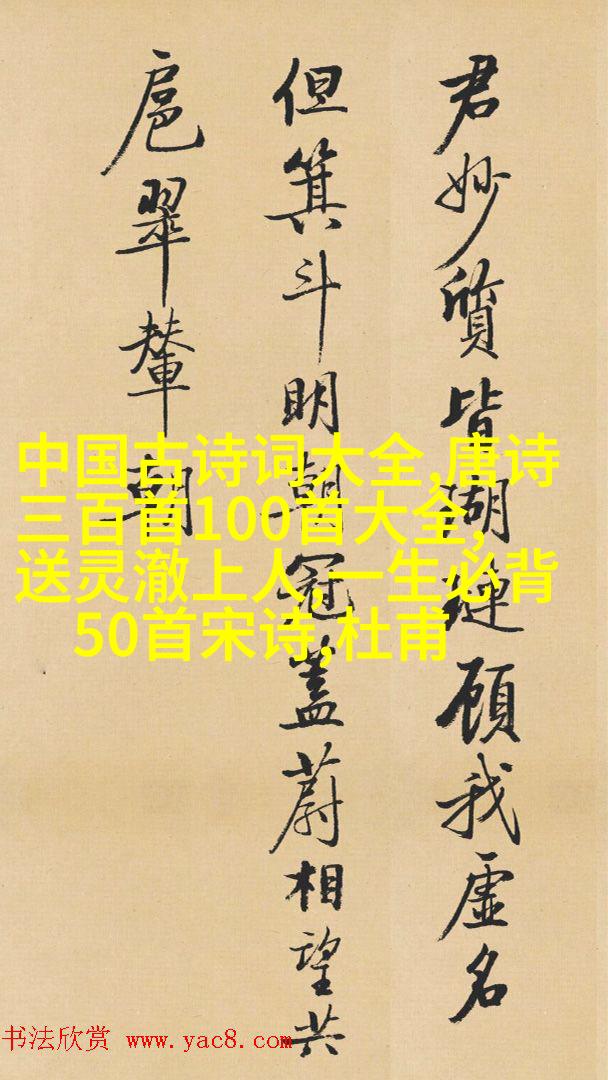 君妙質皆瑚璉顧我虛名
但箕斗明朝冠蓋蔚相望共
扈翠輦朝
中国古诗词大全,唐诗
三百首100首大全,
送灵澈上人,一生必背
50首宋诗,杜甫
书法欣赏 www.yac8.com